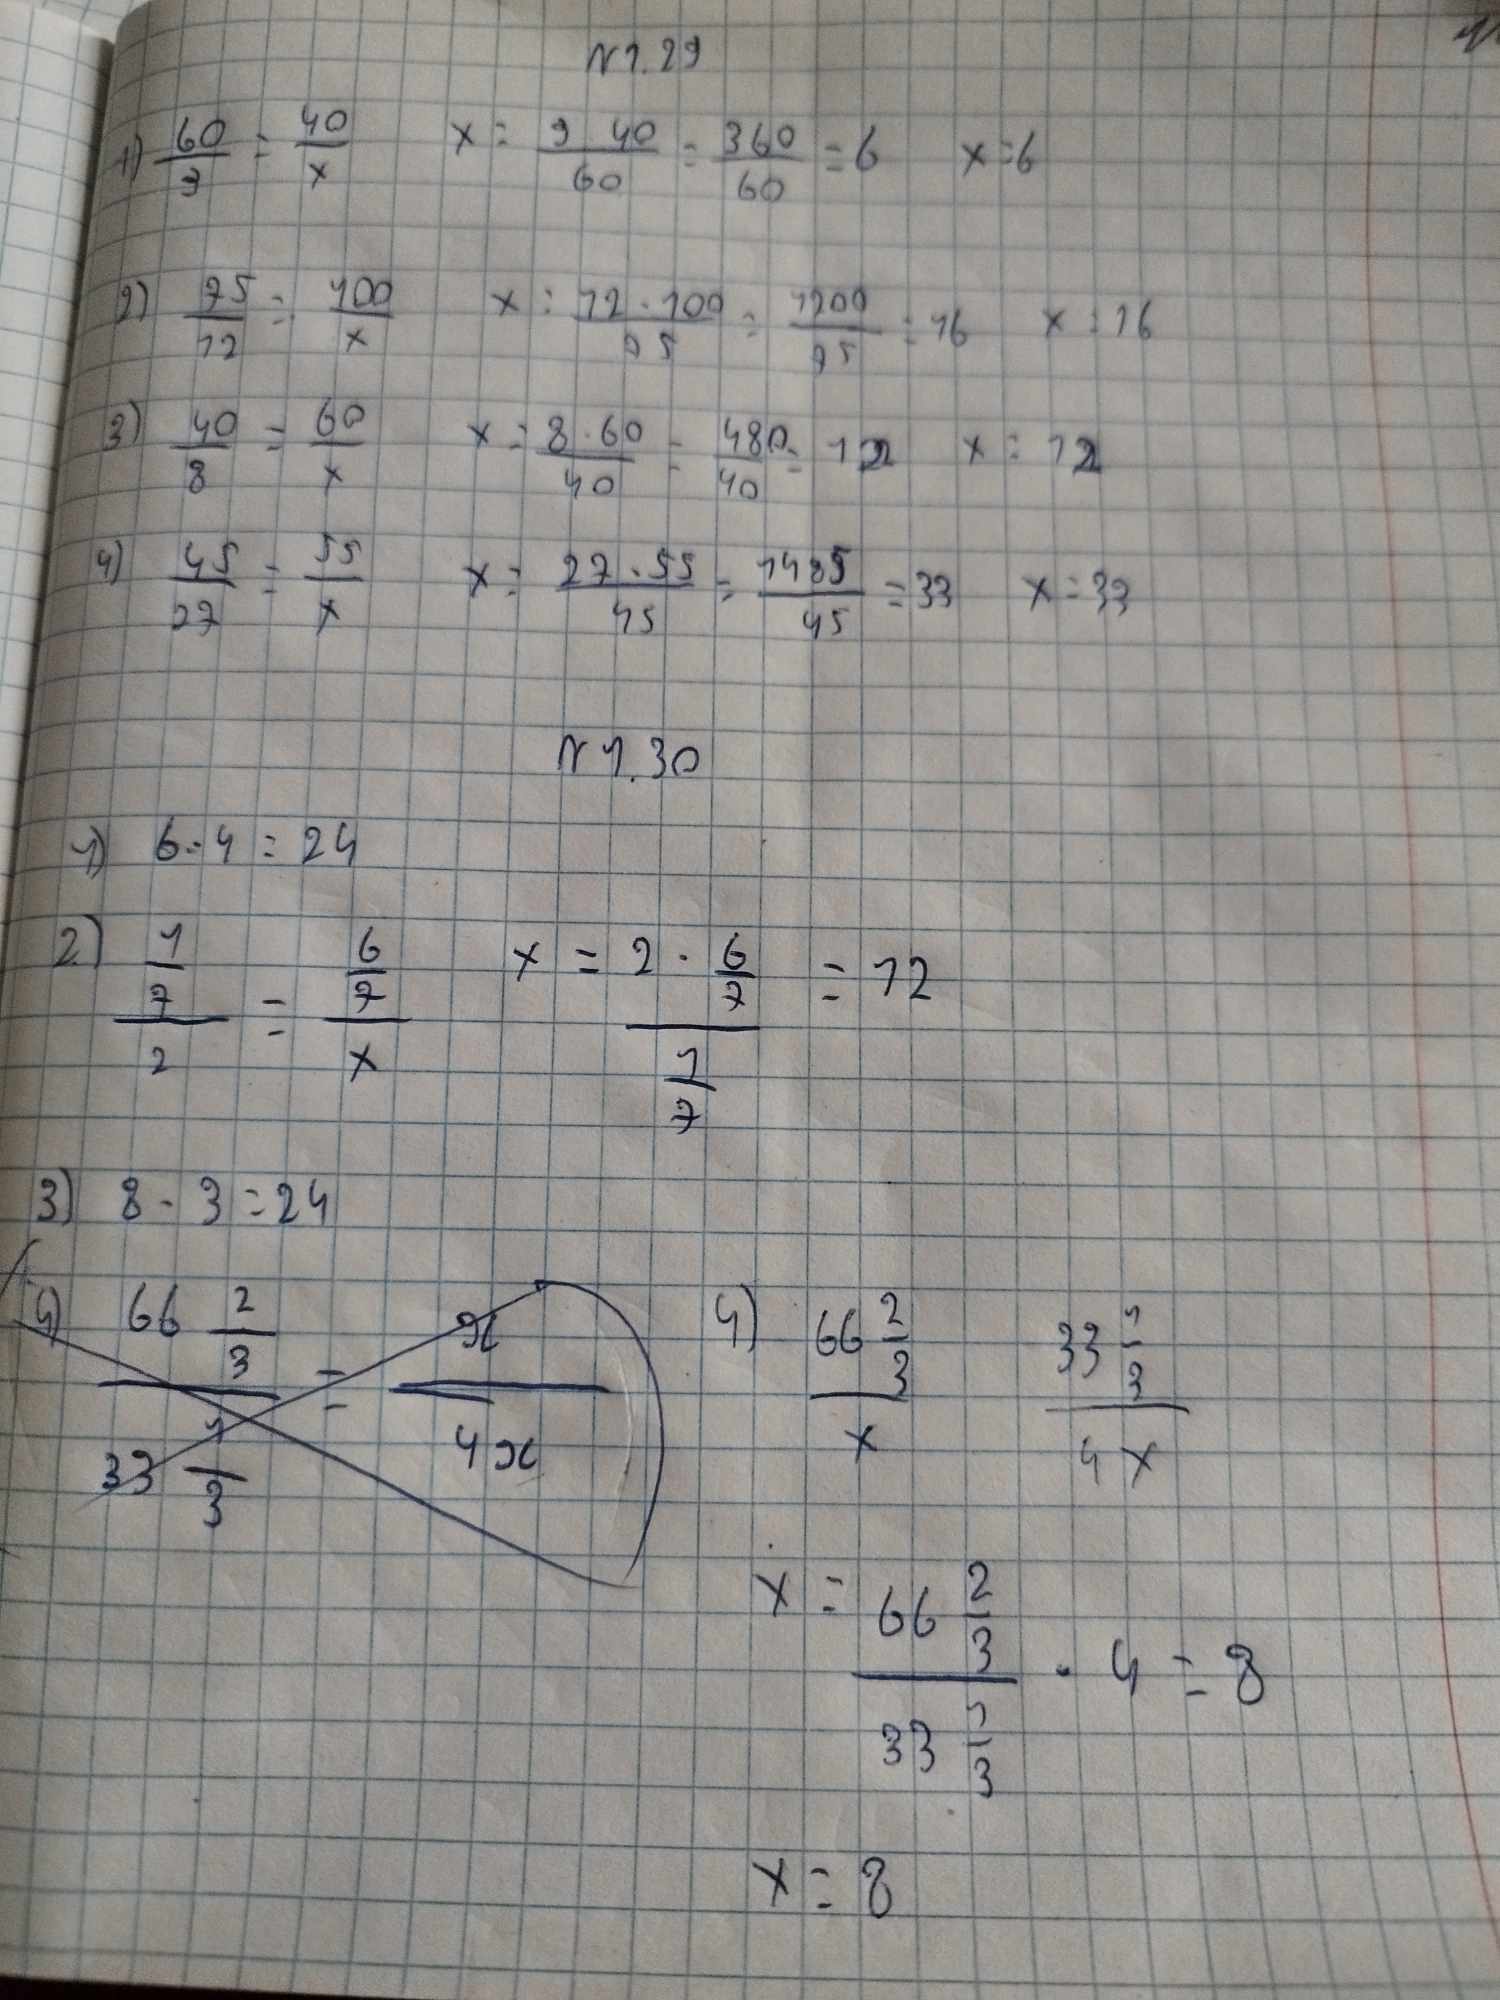 N 1.29
1) 60/9 = 40/x x = 9 · 40/60 = 360/60 = 6 x = 6
2) 75/12 = 100/x x = 12 · 100/75 = 1200/75 = 16 x = 16
3) 40/8 = 60/x x = 8 · 60/40 = 480/40 = 12 x = 12
4) 45/27 = 55/x x = 27 · 55/45 = 1485/45 = 33 x = 33
N 1.30
1) 6 · 4 = 24
2) 1/7/2 = 6/7/x x = 2 · 6/7/1/7 = 12
3) 8 · 3 = 24
4) 66 2/3/33 1/3 = x/4x
4) 66 2/3/x 33 1/3/4 x
x = 66 2/3/33 1/3 · 4 = 8
x = 8